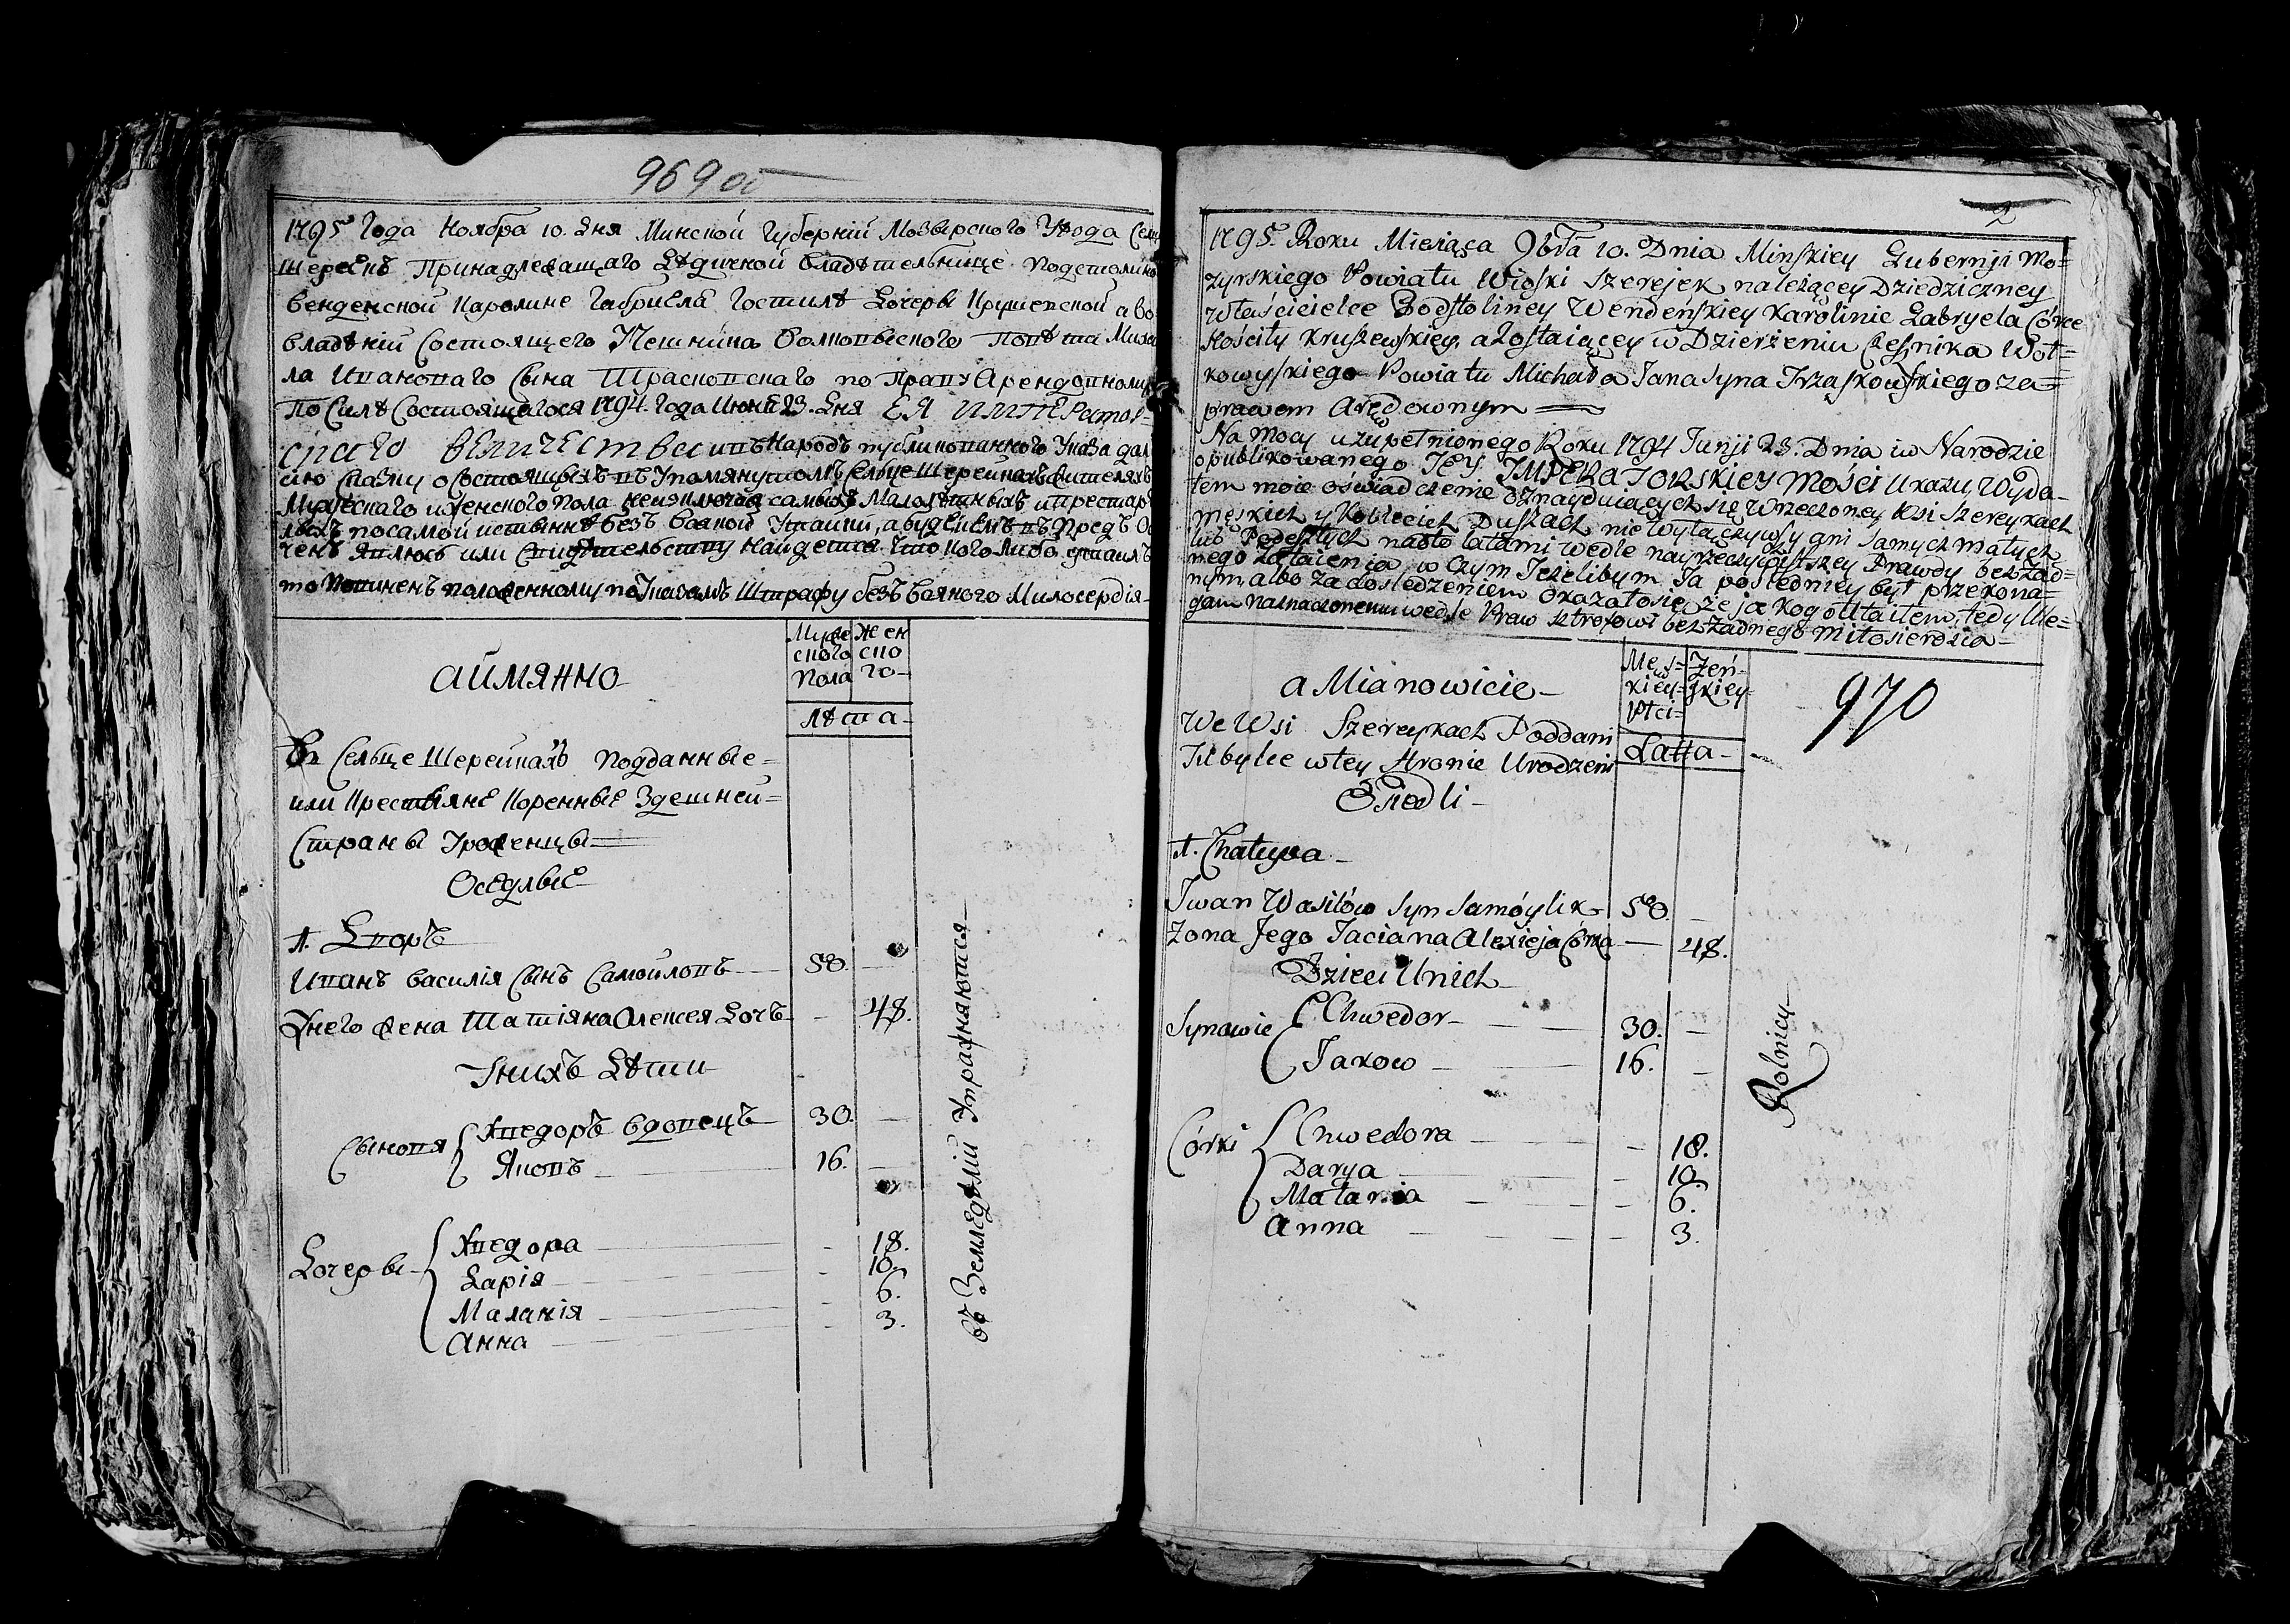 969 об
1795 Года Ноября 10. Дня Минской Губерніи Мозырского Уезда
Шереекъ Принадлежащаго Дѣдичной владѣтельнице Подстолино
венденской Каролине Габриеля Костилѣ Дочеры Крушевской а во
владѣніи Состоящего Чешника Волковыского Повѣта Миха
ла Иванового Сына Траспоского по Праву Арендовному
По Силѣ Состоящагося 1794. Года Июня 23. Дня ЕЯ ИМПЕРатор
скаго ВЕЛИЧЕСТВа ивъ Народъ публикованного Указа даю
сию Сказку о Состоящихъ въ Упомянутомъ Сельце Шерейкахъ жителяхъ
Мужеского иженского пола неизключая самыхъ Малолѣтныхъ ипрестарѣ
лыхъ посамой истинне безъ всякой Утайки, абудеКемъ въПредъ
ченъ явлюсь или Свидѣтельству Найдется. Что кого Либо утаилъ
то Повиненъ положенному по Указамъ Штрафу безъ всякого Милосердія
аИМЯННО
Муже
ского
Пола
жен
ско
го
лѣта
Въ Сельце Шерейкахъ подданные
или Крестьяне Коренные Здешней
Страны Уроженцы
Оседлые
1. Дворъ
Иванъ Василія Сынъ Самойловъ 58. —
Унего жена Татіяна Олексея Дочь — 48.
Унихъ Дѣти
Сыновя Хведоръ вдовецъ 30. —
Яковъ 16. —
Дочеры Хведора — 18.
Дарія — 10.
Маланія — 6.
Анна — 3.
въ Земледѣліи Упражняются
2
1795. Roku Miesiąca 9bra 10. Dnia Minskiey Gubernji Mo=
zyrskiego Powiatu Wioski Szerejek należącey Dziedziczney
właścicielce Podstoliney Wendeńskiey Karolinie Gabryela Córce
Kościły Kruszewskiey, a Zostaiącey w Dzierżeniu Cześnika Woł=
kowyskiego Powiatu Michała Jana syna Trzaskowskiego za
prawem Arędownym
Na Mocy uzupełnionego Roku 1794 Junji 23. Dnia iw Narodzie
opublikowanego JEy IMPERATORSKIEY Mości Ukazu, Wyda=
iem moie oświadczenie oznayduiących się w rzeczoney Wsi Szereykach
męskich y Kobiecich Duszach nie wyłączywszy ani samych małych
lub Podeszłych nadto latami wedle nayrzeczywistszey Prawdy bez żad=
nego Zataienia, w czym Jeżelibym Ja pośledniey był przekona=
nym, albo za dośledzeniem okazało się, że ja kogo Utaiłem, tedy Ule=
gam naznaczonemu wedle Praw sztrofowi bez żadnego miłosierdzia
a Mianowicie
Męz=
kiey
Płci
Żeń=
skiey
Latta
970
We Wsi Szereykach Poddani
Tubylce w tey stronie Urodzeni
Osiedli
1. Chałupa
Iwan Wasilów syn Samóylik 58. —
Zona Jego Taciana Alexieja Córka — 48.
Dzieci Unich
Synowie Chwedor 30. —
Jakow 16. —
Córki Chwedora — 18.
Darya — 10.
Malania — 6.
Anna — 3.
Rolnicy